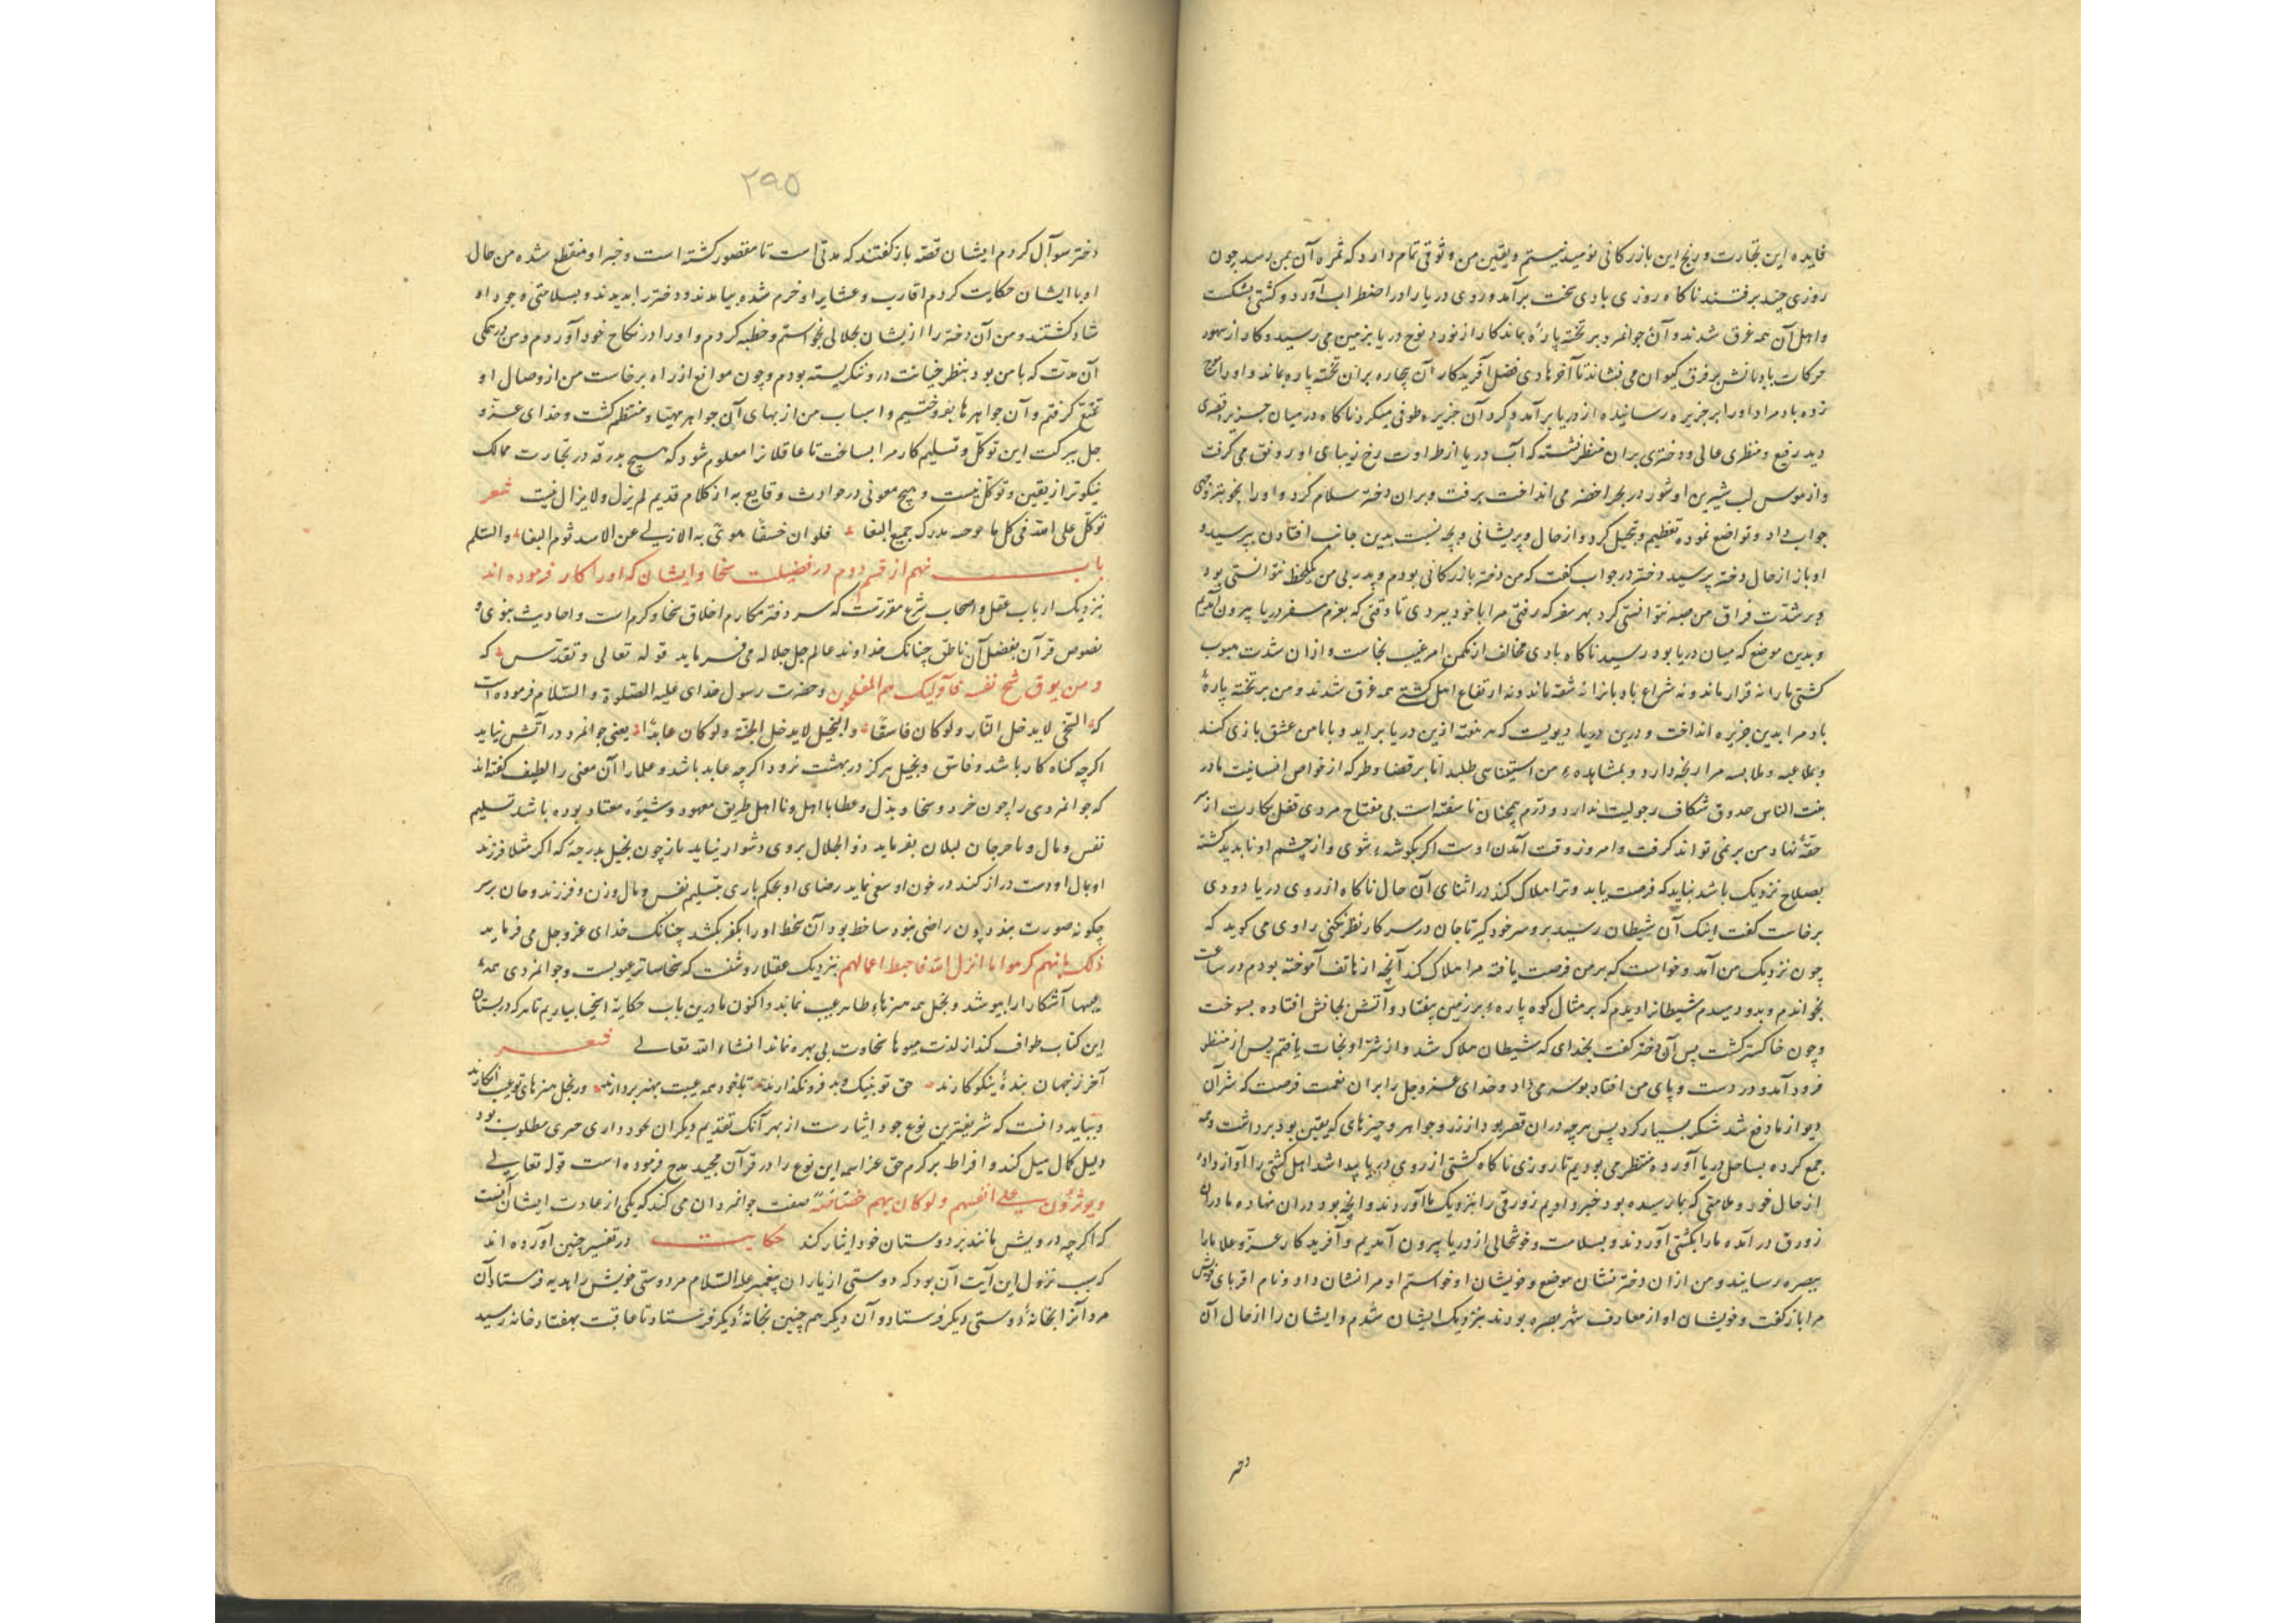 فایده این تجارت و رنج این بازرکانی نومید نیستم و یقین من وثوقی تمام دارد که ثمره آن بمن رسد چون
روزی چند برفتند ناکاه روزی بادی سخت برآمد و روی دریا را در اضطراب آورد و کشتی بشکست
و اهل آن همه غرق شدند و آن جوانمرد بر تخته پارهٔ بماند کار از نورد نوح دریا بزمین می رسید و کار از
حرکات بادبانش بر فرق کیوان می نشاند تا آخر هادی فضل آفریدکار آن بیچاره بران تخته پاره بماند و او را موج
زده باد مراد او را بر جزیره رسانیده از دریا برآمد و کرد آن جزیره طوفی میکرد ناکاه در میان جزیره قصری
دید رفیع و منظری عالی و دختری بران منظر نشسته که آب دریا از طراوت رخ زیبای او رونق می کرفت
و از هوس لب شیرین او شور در بحر اخضر می انداخت برفت و بران دختر سلام کرد و او را بخوبترین وجهی
جواب داد و تواضع نموده تعظیم و تبجیل کرد و از حال و پریشانی و بچه نسبت بدین جانب افتادن بپرسید و
او باز از حال دختر پرسید دختر در جواب کفت که من دختر بازرکانی بودم و پدر بی من یکلحظه نتوانستی بود
و بر شدت فراق من صبر نتوانستی کرد بهر سفر که رفتی مرا با خود ببردی تا وقتی که بعزم سفر دریا بیرون آمدیم
و بدین موضع که میان دریا بود رسید ناکاه بادی مخالف از مکمن امر غیب بخاست و از ان شدت هبوب
کشتی ما را نه قرار ماند و نه شراع بادبانرا نه شقه ماند و نه ارتفاع اهل کشتی همه غرق شدند و من بر تخته پارهٔ
باد مرا بدین جزیره انداخت و درین دریا، دیویست که هر هفته ازین دریا برآید و با من عشق بازی کند
و بملاعبه و ملابسه مرا رنجه دارد و بمشاهدهٔ من استیناسی طلبد اما بر قضا وطر که از خواص انسانیت مادر
بنت الناس صدوق شکاف رجولیت ندارد و درّم همچنان ناسفته است بی مفتاح مردی قفل بکارت از
حقهٔ نهاد من بر نمی تواند کرفت و امروز وقت آمدن اوست اکر بکوشهٔ شوی و از چشم او نابدید کشته
بصلاح نزدیک باشد نباید که فرصت یابد و ترا هلاک کند در اثنای آن حال ناکاه از روی دریا دودی
برخاست کفت اینک آن شیطان رسید برو سر خود کیر تا جان در سر کار نظر نکنی راوی می کوید که
چون نزدیک من آمد و خواست که بر من فرصت یافته مرا هلاک کند آنچه از هاتف آموخته بودم در ساعت
بخواندم و بدو دمیدم شیطانرا دیدم که بر مثال کوه پارهٔ بر زمین بیفتاد و آتش بجانش افتاده بسوخت
و چون خاکستر کشت پس آن دختر کفت بخدای که شیطان هلاک شد و از شر او نجات یافتم پس از منظر
فرود آمد و در دست و پای من افتاد بوسه می داد و خدای عز و جل را بران نعمت فرصت که شر آن
دیو از ما دفع شد شکر بسیار کرد پس هرچه دران قصر بود از زر و جواهر و چیزهای که یقین بود برداشت و همه
جمع کرده بساحل دریا آورده منتظر می بودیم تا روزی ناکاه کشتی از روی دریا پیدا شد اهل کشتی را آواز داده
از حال خود و علامتی که بما رسیده بود خبر دادیم زورقی را بنزدیک ما آوردند و آنچه بود دران نهاده ما دران
زورق درآمده ما را بکشتی آوردند و بسلامت و خوشحالی از دریا بیرون آمدیم و آفریدکار عز و علا ما را
ببصره رسانید و من از ان دختر نشان موضع و خویشان او خواستم او مرا نشان داد و نام اقربای خویش
مرا باز کفت و خویشان او از معارف شهر بصره بودند بنزدیک ایشان شدم و ایشان را از حال آن
دختر
٢٩٥
دختر سوآل کردم ایشان قصه باز کفتند که مدتی است تا مقصور کشته است و خبر او منقطع شده من حال
او با ایشان حکایت کردم اقارب و عشایر او خرم شده بیامدند و دختر را بدیدند و بسلامتی وجود او
شاد کشتند و من آن دختر را از یشان بحلالی بخواستم و خطبه کردم و او را در نکاح خود آوردم و من در همکی
آن مدت که با من بود بنظر خیانت درو ننکریسته بودم و چون موانع از راه برخاست من از وصال او
تمتع کرفتم و آن جواهرها بفروختیم و اسباب من از بهای آن جواهر مهیا و منتظم کشت و خدای عز و
جل ببرکت این توکل و تسلیم کار مرا بساخت تا عاقلانرا معلوم شود که هیچ بدرقه در تجارت ممالک
نیکوتر از یقین و توکل نیست و هیچ معونی در حوادث و قایع به از کلام قدیم لم یزل و لا یزال نیست شعر
توکل علی الله فی کل ما مدرک جمیع البغا فلو ان خسفا عن الاسد ثوم البغا والسلم
باب نهم از قسم دوم در فضیلت سخا و ایشان که او را کار فرموده اند
بنزدیک ارباب عقل و اصحاب شرع مقررست که سر دفتر مکارم اخلاق سخا و کرم است و احادیث نبوی و
نصوص قرآن بفضل آن ناطق چنانک خداوند عالم جل جلاله می فرماید قوله تعالی و تقدس که
و من یوق شح نفسه فاولیک هم المفلحون و حضرت رسول خدای علیه الصلوة و السلام فرموده است
که السخی لا یدخل النار و لو کان فاسقا و البخیل لا یدخل الجنة و لو کان عابدا یعنی جوانمرد در آتش نیاید
اکرچه کناه کار باشد و فاسق و بخیل هرکز در بهشت نرود اکرچه عابد باشد و علما را آن معنی را لطیف کفته اند
که جوانمردی را چون خرد و سخا و بذل و عطا با اهل و نااهل طریق معهود و شیوه معتاد بوده باشد تسلیم
نفس و مال و ما حرجان لبلان بفرماید ذو الجلال بر وی دشوار نیاید باز چون بخیل بدرجهٔ که اکر مثلا فرزند
او بمال او دست دراز کند در خون او سعی نماید رضای او بحکم باری بتسلیم نفس و مال و زن و فرزند و جان بر سر
چکونه صورت بندد چون راضی نبود ساخط بود آن سخط او را بکفر بکشد چنانک خدای عز و جل می فرماید
ذلک بانهم کرهوا ما انزل الله فاحبط اعمالهم بنزدیک عقلا روشنست که سخا ساتر عیوبست و جوانمردی همه
عیبها آشکارا را بپوشد و بخل همه هنرهاء ظاهر عیب نماید و اکنون ما درین باب حکایة اسخیا بیاریم تا هر که در بستان
این کتاب طواف کند از لذت میوها سخاوت بی بهره نماند انشاء الله تعالی شعر
آخر ز جهان بندهٔ نیکو کارند حق تو بنیک و بد فرو نکذارند با جود همه عیبت بهنر بردارند ور بخل هنرهای تو عیب انکارند
و بباید دانست که شریفترین نوع جود ایثارست از بهر آنک تقدیم دیکران بخود داری چیزی مطلوب بود
دلیل کمال میل کند و افراط بر کرم حق عز اسمه این نوع را در قرآن مجید مدح فرموده است قوله تعالی
و یؤثرون علی انفسهم و لو کان بهم خصاصة صفت جوانمردان می کند که یکی از عادت ایشان آنست
که اکرچه درویش باشند بر دوستان خود ایثار کند حکایت در تفسیر چنین آورده اند
که سبب نزول این آیت آن بود که دوستی از یاران پیغمبر علیه السلام مر دوستی خویش را هدیه فرستاد آن
مرد آنرا بخانهٔ دوستی دیکر فرستاد و آن دیکر هم چنین بخانهٔ دیکر فرستاد تا عاقبت بهفتاد خانه رسید